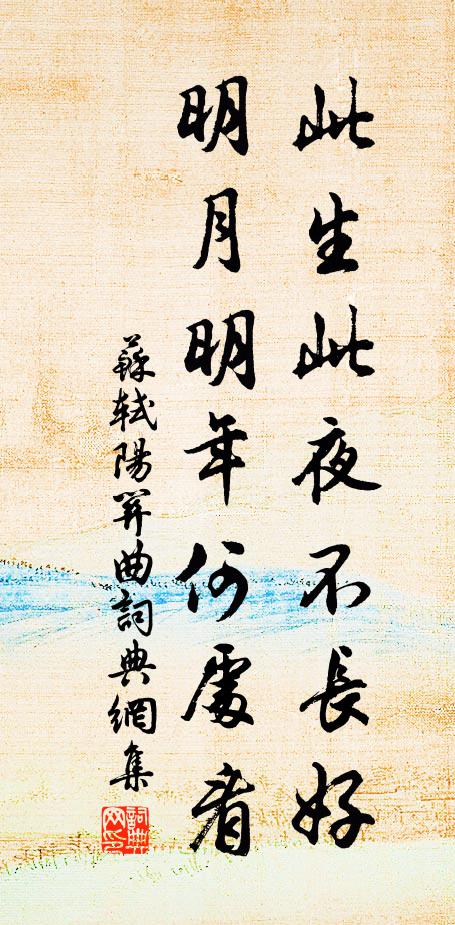 此生此夜不長好
明月明年何處看
蘇軾陽關曲詞典網集
詞典網印